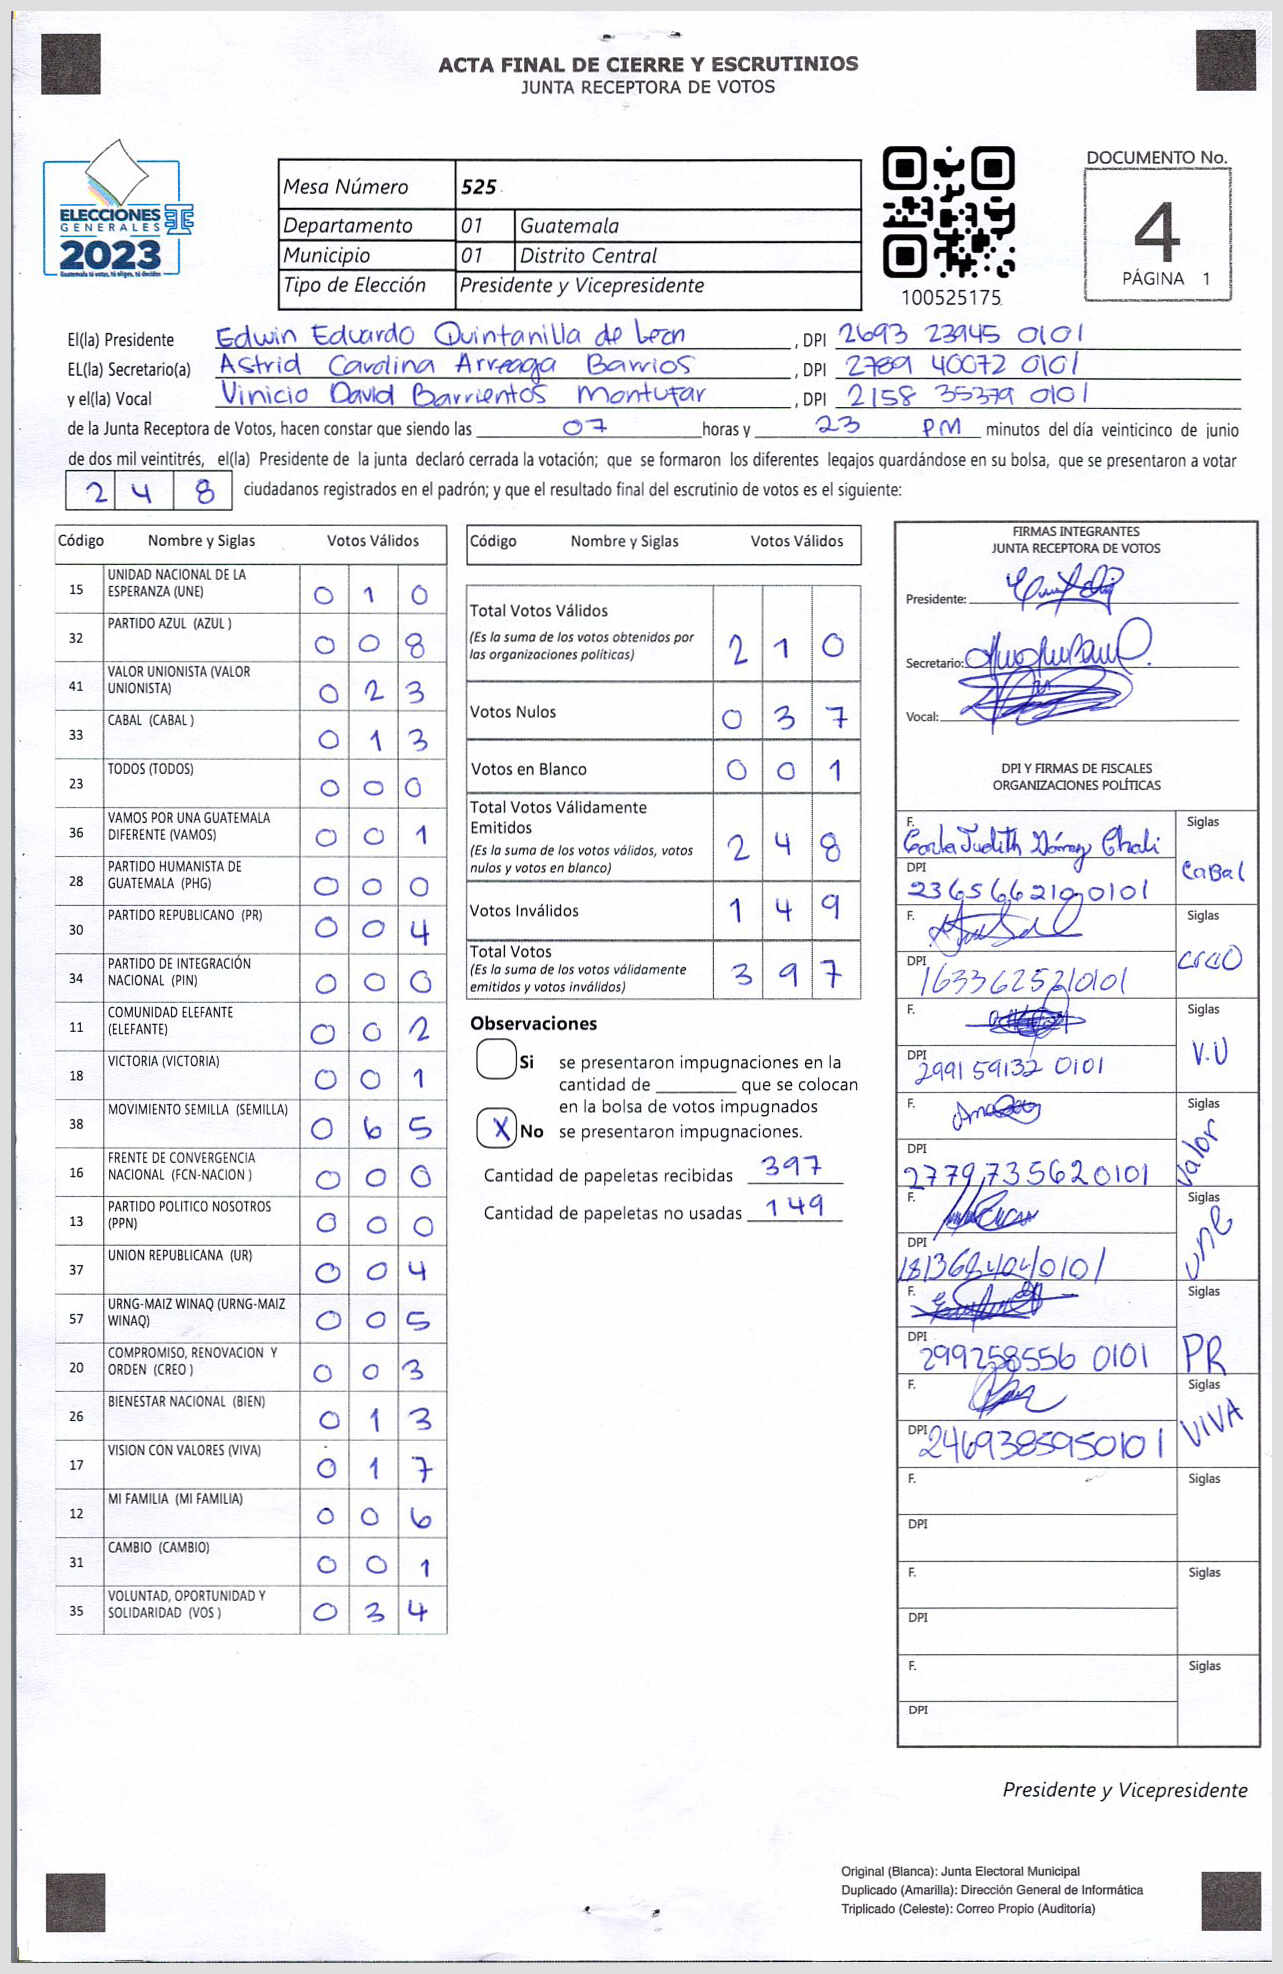 ACTA FINAL DE CIERRE Y ESCRUTINIOS
JUNTA RECEPTORA DE VOTOS
ELECCIONES
GENERALES
2023
Guatemala tú votas, tú eliges, tú decides
Mesa Número 525
Departamento 01 Guatemala
Municipio 01 Distrito Central
Tipo de Elección Presidente y Vicepresidente
100525175
DOCUMENTO No.
4
PÁGINA 1
El(la) Presidente Edwin Eduardo Quintanilla de León, DPI 2693 23945 0101
EL(la) Secretario(a) Astrid Carolina Arreaga Barrios, DPI 2789 40072 0101
y el(la) Vocal Vinicio David Barrientos Montufar, DPI 2158 35379 0101
de la Junta Receptora de Votos, hacen constar que siendo las 07 horas y 23 PM minutos del día veinticinco de junio
de dos mil veintitrés, el(la) Presidente de la junta declaró cerrada la votación; que se formaron los diferentes legajos guardándose en su bolsa, que se presentaron a votar
2 4 8 ciudadanos registrados en el padrón; y que el resultado final del escrutinio de votos es el siguiente:
Código Nombre y Siglas Votos Válidos
15 UNIDAD NACIONAL DE LA ESPERANZA (UNE) 0 1 0
32 PARTIDO AZUL (AZUL ) 0 0 8
41 VALOR UNIONISTA (VALOR UNIONISTA) 0 2 3
33 CABAL (CABAL ) 0 1 3
23 TODOS (TODOS) 0 0 0
36 VAMOS POR UNA GUATEMALA DIFERENTE (VAMOS) 0 0 1
28 PARTIDO HUMANISTA DE GUATEMALA (PHG) 0 0 0
30 PARTIDO REPUBLICANO (PR) 0 0 4
34 PARTIDO DE INTEGRACIÓN NACIONAL (PIN) 0 0 0
11 COMUNIDAD ELEFANTE (ELEFANTE) 0 0 2
18 VICTORIA (VICTORIA) 0 0 1
38 MOVIMIENTO SEMILLA (SEMILLA) 0 6 5
16 FRENTE DE CONVERGENCIA NACIONAL (FCN-NACION ) 0 0 0
13 PARTIDO POLITICO NOSOTROS (PPN) 0 0 0
37 UNION REPUBLICANA (UR) 0 0 4
57 URNG-MAIZ WINAQ (URNG-MAIZ WINAQ) 0 0 5
20 COMPROMISO, RENOVACION Y ORDEN (CREO ) 0 0 3
26 BIENESTAR NACIONAL (BIEN) 0 1 3
17 VISION CON VALORES (VIVA) 0 1 7
12 MI FAMILIA (MI FAMILIA) 0 0 6
31 CAMBIO (CAMBIO) 0 0 1
35 VOLUNTAD, OPORTUNIDAD Y SOLIDARIDAD (VOS ) 0 3 4
Código Nombre y Siglas Votos Válidos
Total Votos Válidos 2 1 0
(Es la suma de los votos obtenidos por
las organizaciones políticas)
Votos Nulos 0 3 7
Votos en Blanco 0 0 1
Total Votos Válidamente
Emitidos 2 4 8
(Es la suma de los votos válidos, votos
nulos y votos en blanco)
Votos Inválidos 1 4 9
Total Votos 3 9 7
(Es la suma de los votos válidamente
emitidos y votos inválidos)
Observaciones
Si se presentaron impugnaciones en la
cantidad de ________ que se colocan
en la bolsa de votos impugnados
X No se presentaron impugnaciones.
Cantidad de papeletas recibidas 397
Cantidad de papeletas no usadas 149
FIRMAS INTEGRANTES
JUNTA RECEPTORA DE VOTOS
Presidente:
Secretario:
Vocal:
DPI Y FIRMAS DE FISCALES
ORGANIZACIONES POLÍTICAS
F. Siglas
CABAL
DPI 2365662100101
F. Siglas
DPI 1633625210101
F. Siglas
V.U
DPI 2991 59132 0101
F. Siglas
Valor
DPI 2779735620101
F. Siglas
UNE
DPI 1813684040101
F. Siglas
PR
DPI 299258556 0101
F. Siglas
VIVA
DPI 2469385950101
F. Siglas
DPI
F. Siglas
DPI
F. Siglas
DPI
Presidente y Vicepresidente
Original (Blanca): Junta Electoral Municipal
Duplicado (Amarilla): Dirección General de Informática
Triplicado (Celeste): Correo Propio (Auditoría)